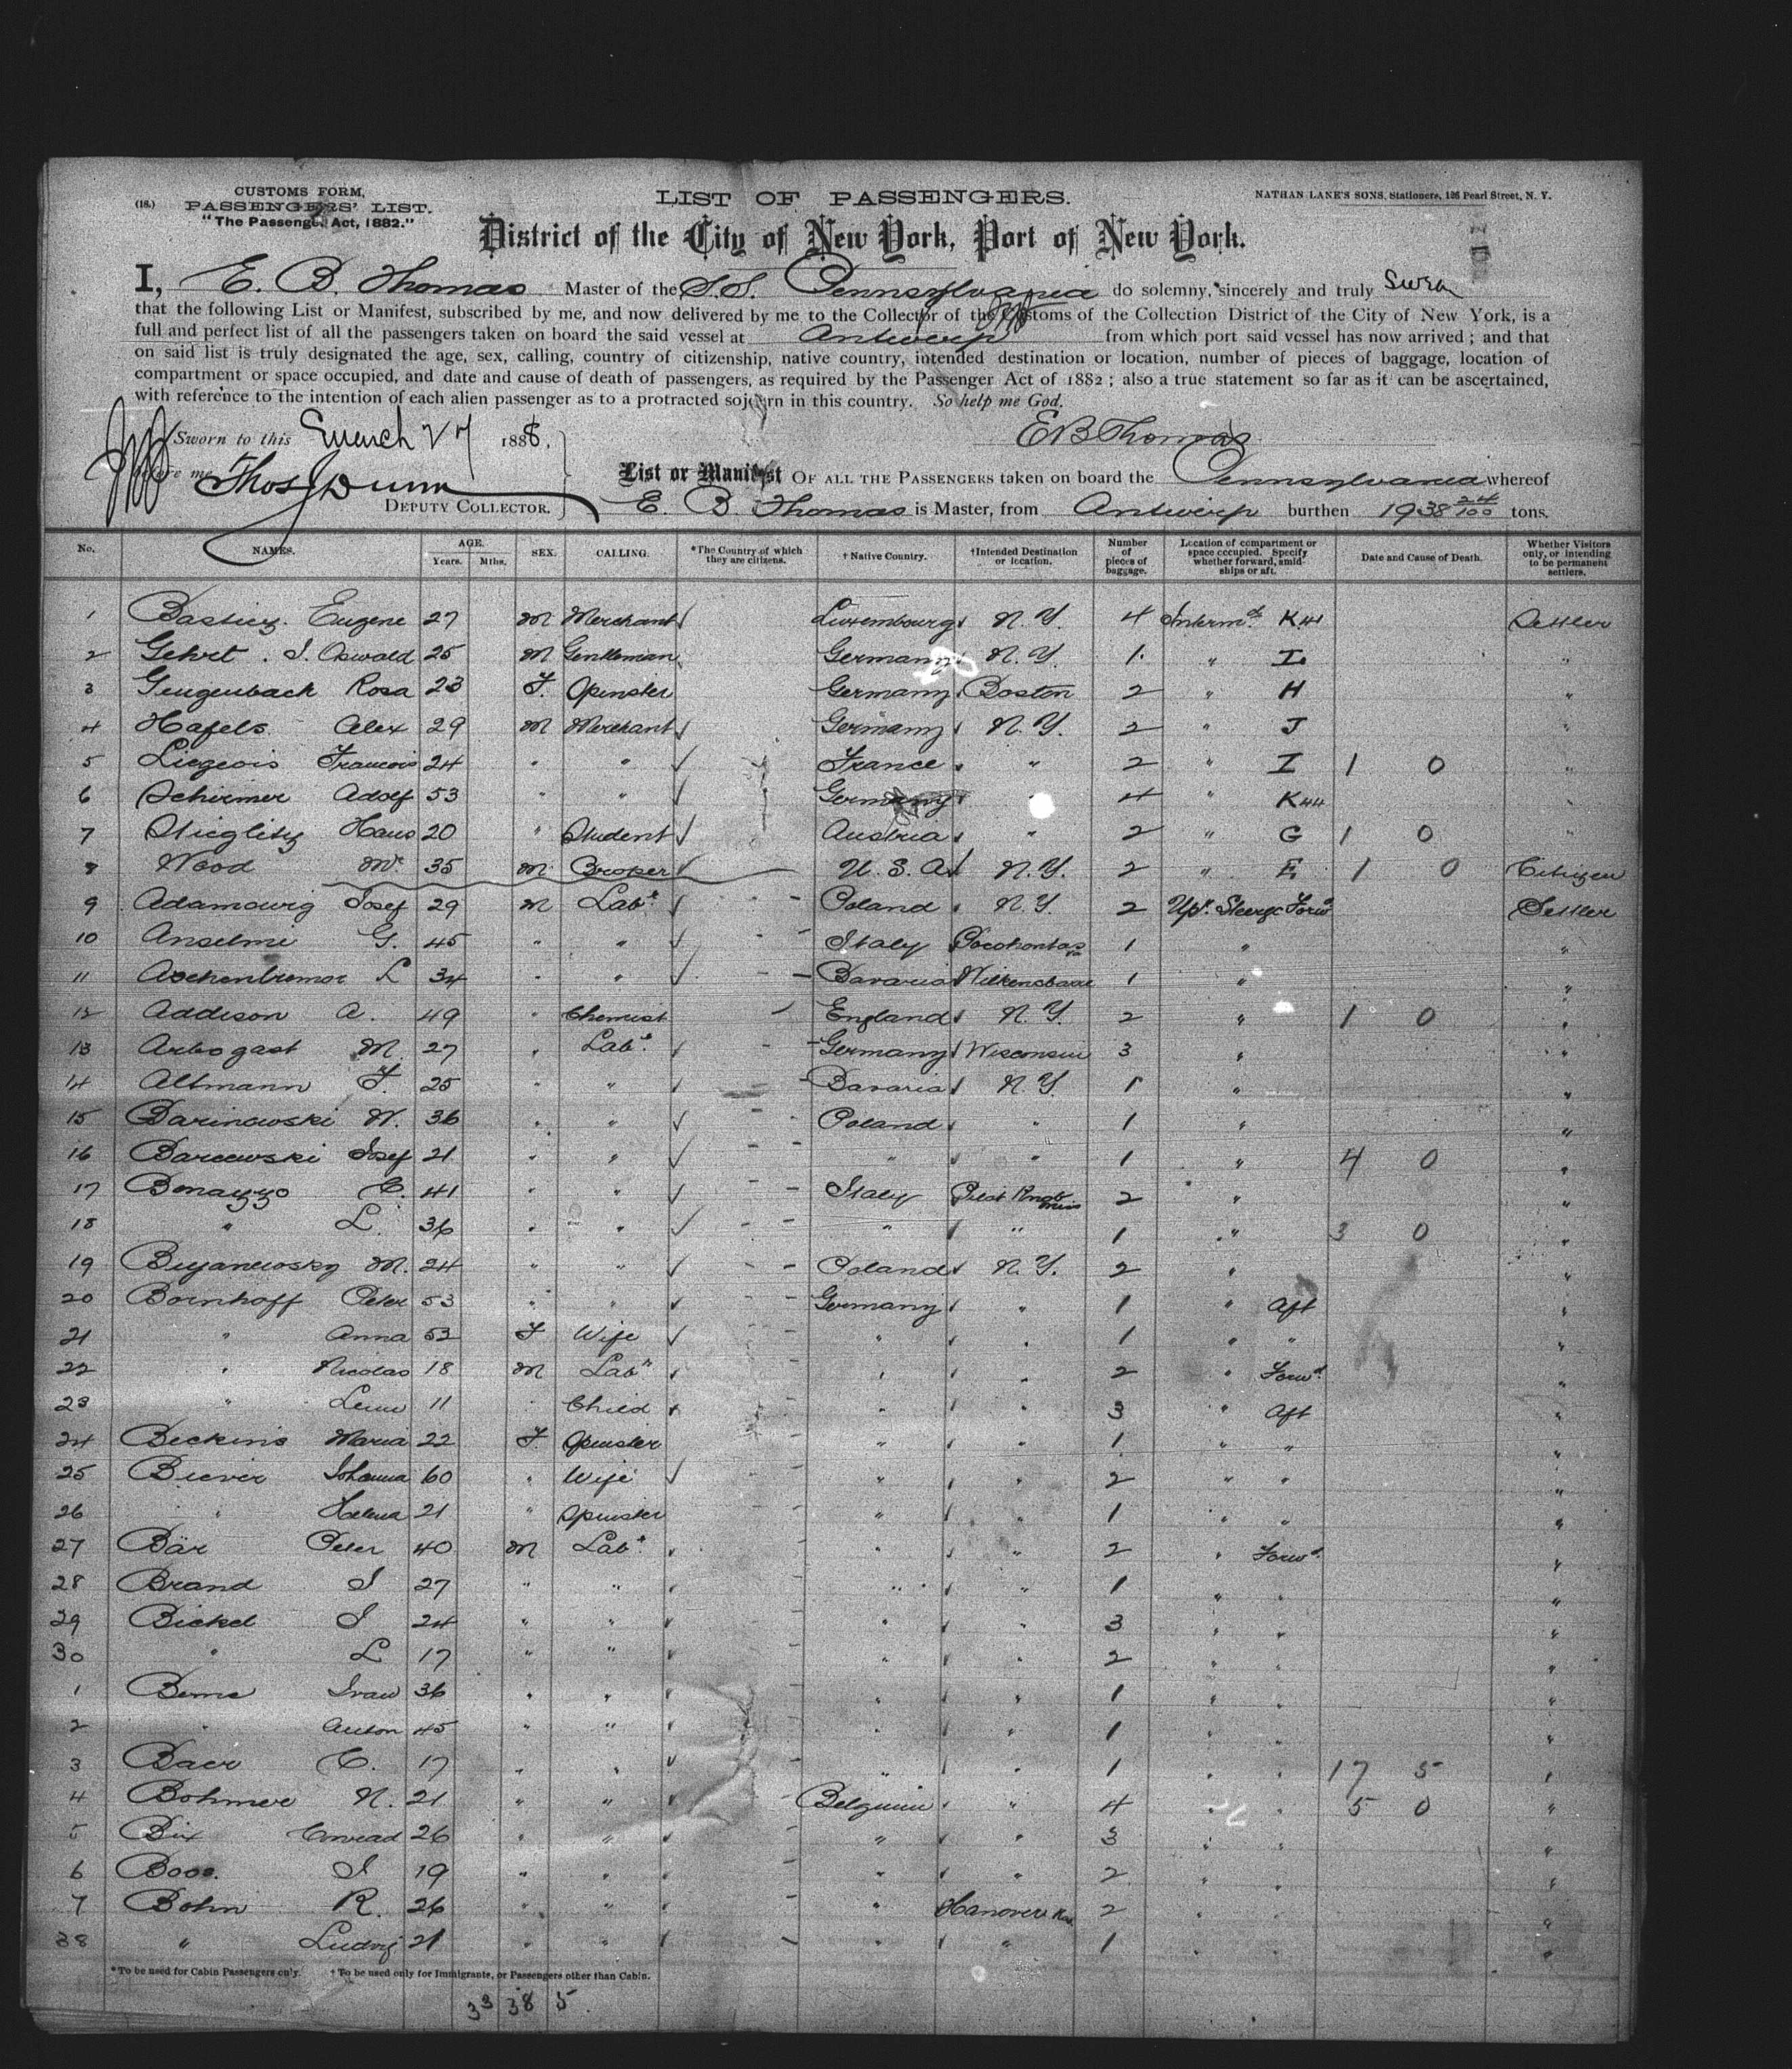 (18.)
CUSTOMS FORM,
PASSENGERS' LIST.
"The Passenger Act, 1882."
LIST OF PASSENGERS.
NATHAN LANE'S SONS, Stationers, 126 Pearl Street, N. Y.
District of the City of New York, Port of New York.
I, E. B. Thomas Master of the S.S. Pennsylvania do solemny, sincerely and truly Swear
that the following List or Manifest, subscribed by me, and now delivered by me to the Collector of the Customs of the Collection District of the City of New York, is a
full and perfect list of all the passengers taken on board the said vessel at Antwerp from which port said vessel has now arrived; and that
on said list is truly designated the age, sex, calling, country of citizenship, native country, intended destination or location, number of pieces of baggage, location of
compartment or space occupied, and date and cause of death of passengers, as required by the Passenger Act of 1882; also a true statement so far as it can be ascertained,
with reference to the intention of each alien passenger as to a protracted sojourn in this country. So help me God.
Sworn to this March 27 1888.
EBThomas
before me Thos J Dunn
DEPUTY COLLECTOR.
List or Manifest OF ALL THE PASSENGERS taken on board the Pennsylvania whereof
E. B. Thomas is Master, from Antwerp burthen 1938 24/100 tons.
No. NAMES. AGE. Years. Mths. SEX. CALLING. *The Country of which they are citizens. † Native Country. †Intended Destination or location. Number of pieces of baggage. Location of compartment or space occupied. Specify whether forward, amidships or aft. Date and Cause of Death. Whether Visitors only, or intending to be permanent settlers.
1 Eugene 27 M Merchant Luxembourg N.Y. 4 Interm. K44 Settler
2 Gehrt. J. Oswald 25 M Gentleman Germany N.Y. 1 " I "
3 Gengenbach Rosa 23 F. Spinster Germany Boston 2 " H "
4 Hafels Alex 29 M Merchant Germany N.Y. 2 " J "
5 Liegeois Francois 24 " " France " 2 " I 1 0 "
6 Schirmer Adolf 53 " " Germany " 4 " K44 "
7 Stieglitz Hans 20 " Student Austria " 2 " G 1 0 "
8 Wood Mr. 35 M U.S.A N.Y. 2 " E 1 0 Citizen
9 Josef 29 M Labr Poland N.Y. 2 Upr. Steerge Forwd Settler
10 Anselmi G. 45 " " Italy Pocohontas Va 1 " "
11 L 34 " " Bavaria 1 " "
12 Addison A. 49 " Chemist England N.Y. 2 " 1 0 "
13 Arbogast M. 27 " Labr. Germany Wisconsin 3 " "
14 Altmann F. 25 " " Bavaria N.Y. 1 " "
15 Barinowski W. 36 " " Poland " 1 " "
16 Barcewski Josef 21 " " " " 1 " 4 0 "
17 Benazzo C. 41 " " Italy Pilot Knob Miss 2 " "
18 " L. 36 " " " " 1 " 3 0 "
19 M. 24 " " Poland N.Y. 2 " "
20 Bornhoff Peter 53 " " Germany " 1 " Aft "
21 " Anna 52 F Wife " " 1 " " "
22 " Nicolas 18 M Labr " " 2 " Forwd. "
23 " 11 " Child " " 3 " Aft "
24 Beckins Maria 22 F. Spinster " " 1 " " "
25 Biever Johanna 60 " Wife " " 2 " " "
26 " Helena 21 " Spinster " " 1 " " "
27 Bär Peter 40 M Labr. " " 2 " Forwd. "
28 Brand J 27 " " " " 1 " " "
29 Bickel J 24 " " " " 3 " " "
30 " L 17 " " " " 2 " " "
1 36 " " " " 1 " " "
2 " Anton 45 " " " " 1 " " "
3 Baer C. 17 " " " " 1 " " 17 5 "
4 Bohmer N. 21 " " Belgium " 4 " " 5 0 "
5 Bix Conrad 26 " " " " 3 " " "
6 Boos. J 19 " " " " 2 " " "
7 Bohn R. 26 " " " Hanover 2 " " "
38 " Ludwig 21 " " " " 1 " " "
*To be used for Cabin Passengers only. † To be used only for Immigrants, or Passengers other than Cabin.
33 38 5